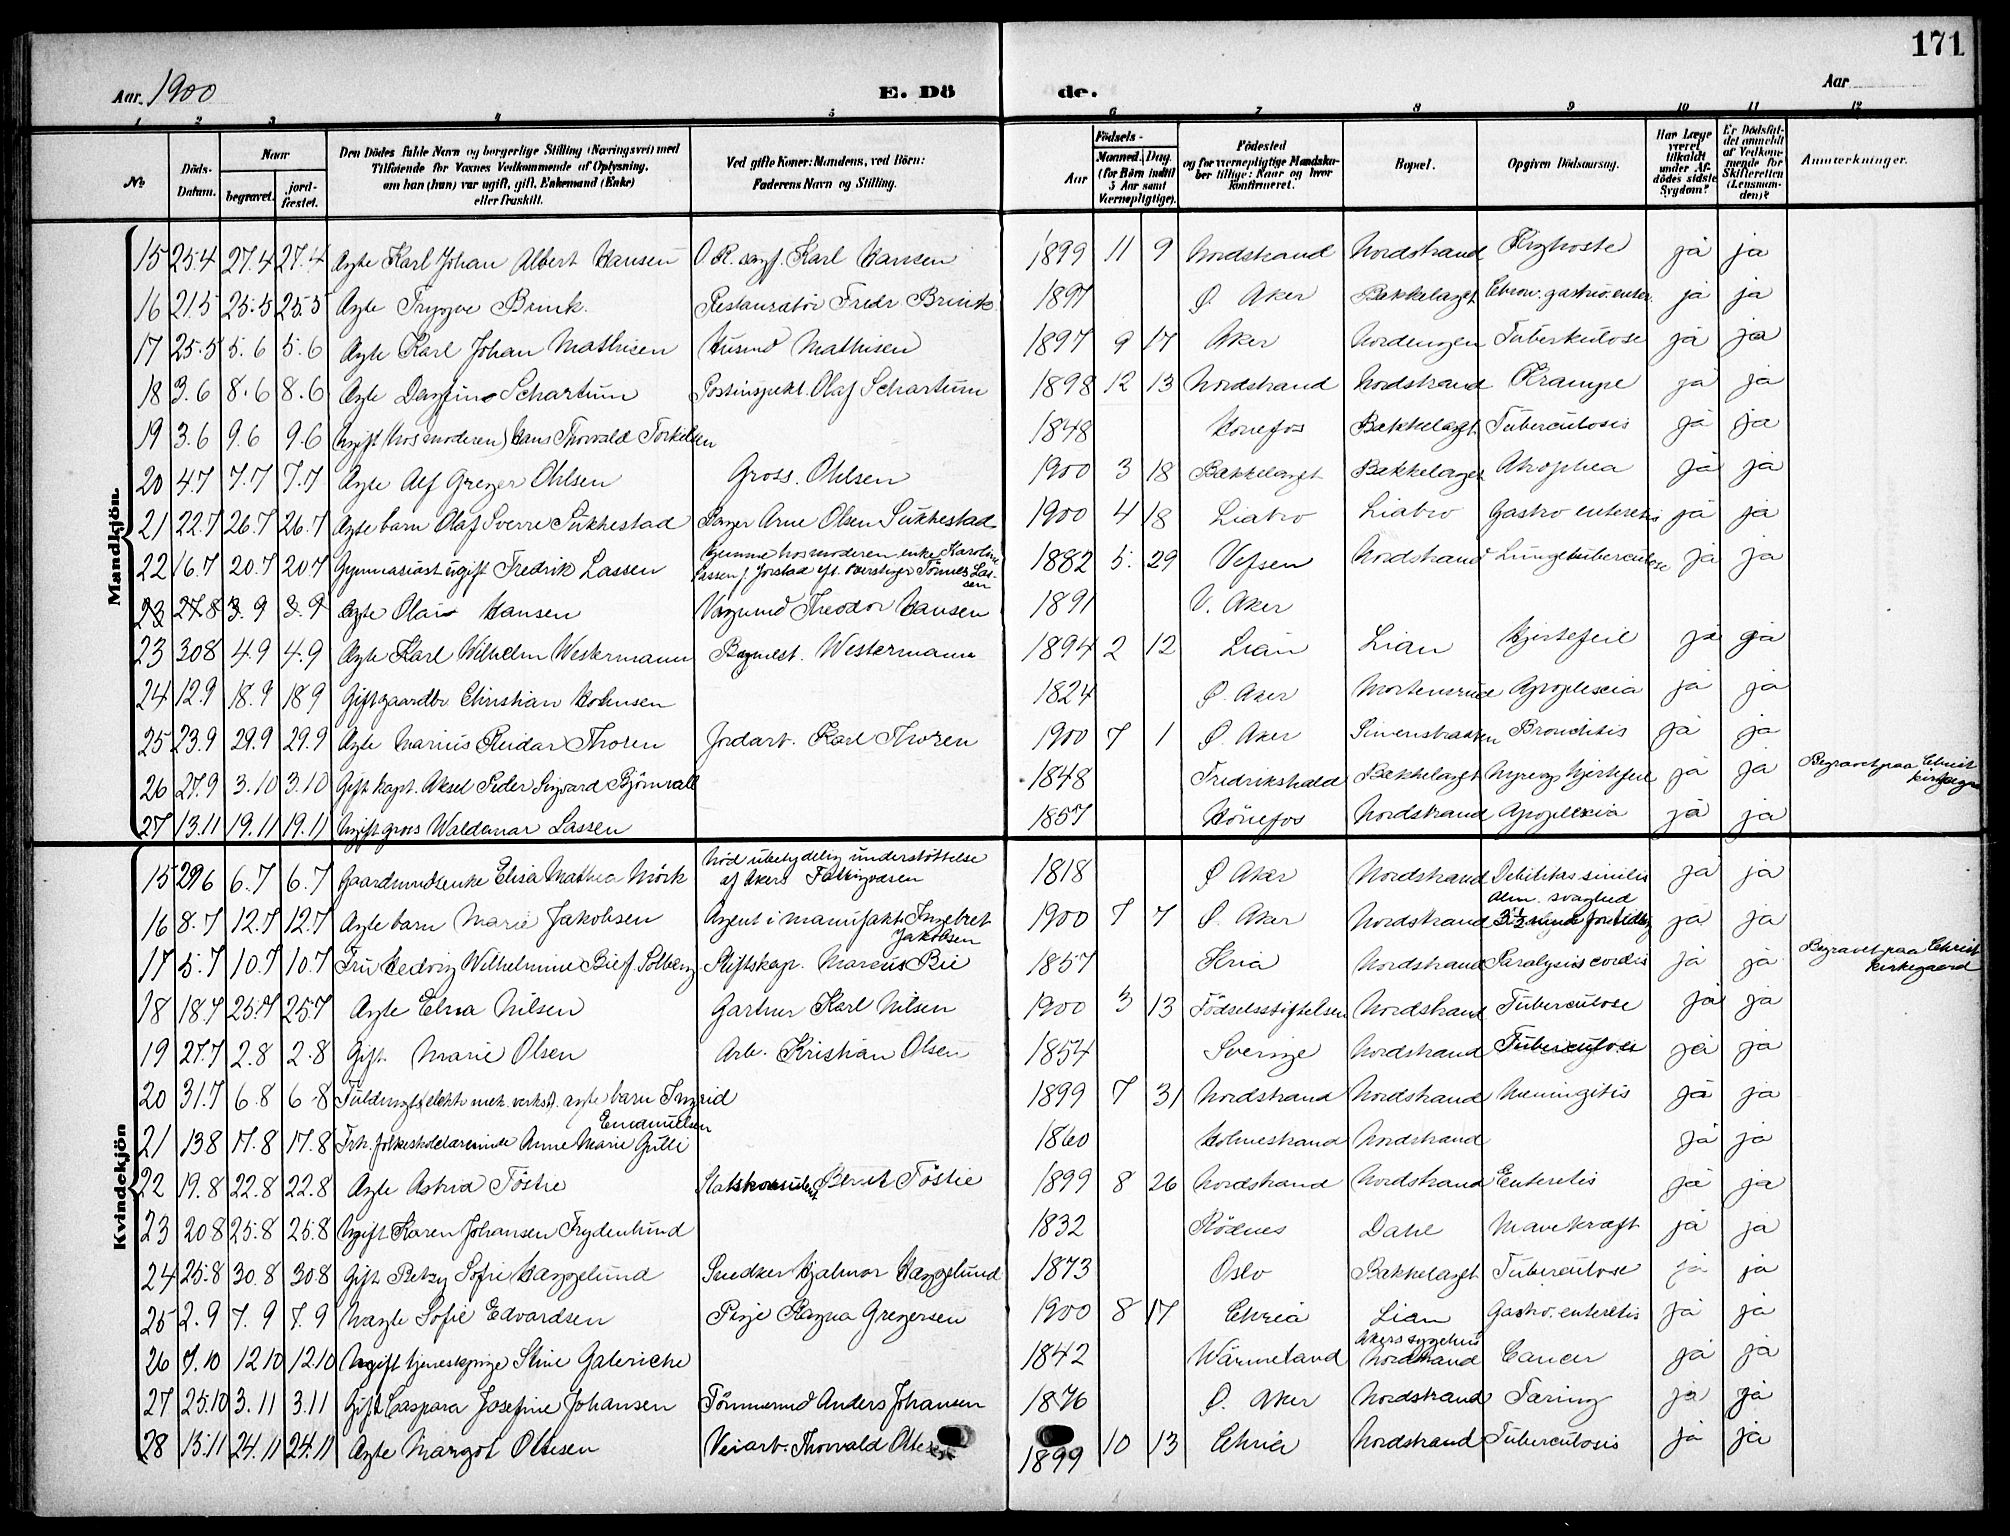 171
Aar. 1900 E. Dö de. Aar
1 2 3 4 5 6 7 8 9 10 11 12
No Döds-Datum. Naar begravet. jordfæstet. Den Dödes fulde Navn og borgerlige Stilling (Næringsvei) med Tilföiende for Voxnes Vedkommende af Oplysning, om han (hun) var ugift, gift, Enkemand (Enke) eller fraskilt. Ved gifte Koner: Mandens, ved Börn: Faderens Navn og Stilling. Födsels- Aar Maaned. Dag. (for Börn indtil 3 Aar samt Værnepligtige). Födested og for værnepligtige Mandskaber tillige: Naar og hvor konfirmeret. Bopæl. Opgiven Dödsaarsag. Har Læge været tilkaldt under Afdödes sidste Sygdom? Er Dödsfaldet anmeldt af Vedkommende for Skifteretten (Lensmanden)? Anmærkninger.
Mandkjön.
15 25.4 27.4 27.4 Ægte Karl Johan Albert Hansen Karl Hansen 1899 11 9 Nordstrand Nordstrand Kighoste ja ja
16 21.5 25.5 25.5 Ægte Trygve Brink. Restauratör Fredr Brink 1897 Ø. Aker Bækkelaget Chron. gastro. enter. ja ja
17 25.5 5.6 5.6 Ægte Karl Johan Mathisen Husmd Mathisen 1897 9 17 Aker Nordengen Tuberkulose ja ja
18 3.6 8.6 8.6 Ægte Dagfin Schartum Postinspekt. Olaf Schartum 1898 12 13 Nordstrand Nordstrand Krampe ja ja
19 3.6 9.6 9.6 Ugift (hos moderen) Hans Thorvald Torkilsen 1848 Hönefos Bækkelaget Tuberculosis ja ja
20 4.7 7.7 7.7 Ægte Alf Greger Ohlsen Gross. Ohlsen 1900 3 18 Bækkelaget Bækkelaget Atrophia ja ja
21 22.7 26.7 26.7 Ægte barn Olaf Sverre Sukkestad Bager Arne Olsen Sukkestad 1900 4 18 Liabro Liabro Gastro enteritis ja ja
22 16.7 20.7 20.7 Gymnasiast ugift Fredrik Lassen hjemme hos moderen enke Karoline Lassen f. Jorstad eft. Overstyer Tönnes Lassen 1882 5. 29 Vefsen Nordstrand Lungetuberculose ja ja
23 27.8 3.9 3.9 Ægte Olai Hansen Theodor Hansen 1891 V. Aker
23 30.8 4.9 4.9 Ægte Karl Wilhelm Westermann Bygmest. Westermann 1894 2 12 Lian Lian Hjertefeil ja ja
24 12.9 18.9 18.9 Gift gaardbr Christian Holmsen 1824 Ø. Aker Mortensrud Apoplexia ja ja
25 23.9 29.9 29.9 Ægte Marius Reidar Thoren Jordarb. Karl Thoren 1900 7 1 Ø. Aker Simensbraaten Bronchitis ja ja
26 27.9 3.10 3.10 Gift kapt. Aksel Peder Sigvard Björnvall 1848 Fredrikshald Bækkelaget Nyre og hjertefeil ja ja Begravet paa Christ kirkegr
27 13.11 19.11 19.11 Ugift gross Waldemar Lassen 1857 Hönefos Nordstrand Apoplexia ja ja
Kvindekjön
15 29.6 6.7 6.7 Gaardmandsenke Elisa Mathea Mörk Nöd ubetydelig understöttelse af Akers Fattigvæsen 1818 Ø Aker Nordstrand Debilitas sinilis ja ja
16 8.7 12.7 12.7 Ægte barn Marie Jakobsen Agent i manufakt. Ingebret Jakobsen 1900 7 7 Ø. Aker Nordstrand Alm. svaghed for tidlig ja ja
17 5.7 10.7 10.7 Fru Hedvig Wilhelmine Bie f. Solberg Stiftskap. Marcus Bie 1857 Xria Nordstrand Paralysis cordis ja ja Begravet paa Christ kirkegaard
18 18.7 25.7 25.7 Ægte Elna Nilsen Gartner Karl Nilsen 1900 3 13 Födselsstiftelsen Nordstrand Tuberculose ja ja
19 27.7 2.8 2.8 Gift Marie Olsen Arb. Kristian Olsen 1854 Sverige Nordstrand Tuberculose ja ja
20 31.7 6.8 6.8 Fuldmægt. elektr. mek. verkst. ægte barn Ingrid Emanuelsen 1899 7 31 Nordstrand Nordstrand Meningitis ja ja
21 13.8 17.8 17.8 Frk. folkeskolelærerinde Anne Marie Gulli 1860 Holmestrand Nordstrand ja ja
22 19.8 22.8 22.8 Ægte Astrid Töstie Bernt Töstie 1899 8 26 Nordstrand Nordstrand Enteritis ja ja
23 20.8 25.8 25.8 Ugift Karen Johansen Frydenlund 1832 Rödnes Dahl Mavekræft ja ja
24 25.8 30.8 30.8 Gift Betzy Sofie Haggelund Snedker Hjalmar Haggelund 1873 Oslo Bækkelaget Tuberculose ja ja
25 2.9 7.9 7.9 Uægte Sofie Edvardsen Pige Ragna Gregersen 1900 8 17 Chria Lian Gastro. enteritis ja ja
26 7.10 12.10 12.10 Ugift tjenestpige Stine Galeriche 1842 Wärmeland Akers sygehus Nordstrand Cancer ja ja
27 25.10 3.11 3.11 Gift Caspara Josefine Johansen Tömmermd Anders Johansen 1876 Ø. Aker Nordstrand Tæring ja ja
28 15.11 24.11 24.11 Ægte Margot Olsen Veiarb. Thorvald Olsen 1899 10 13 Chria Nordstrand Tuberculosis ja ja